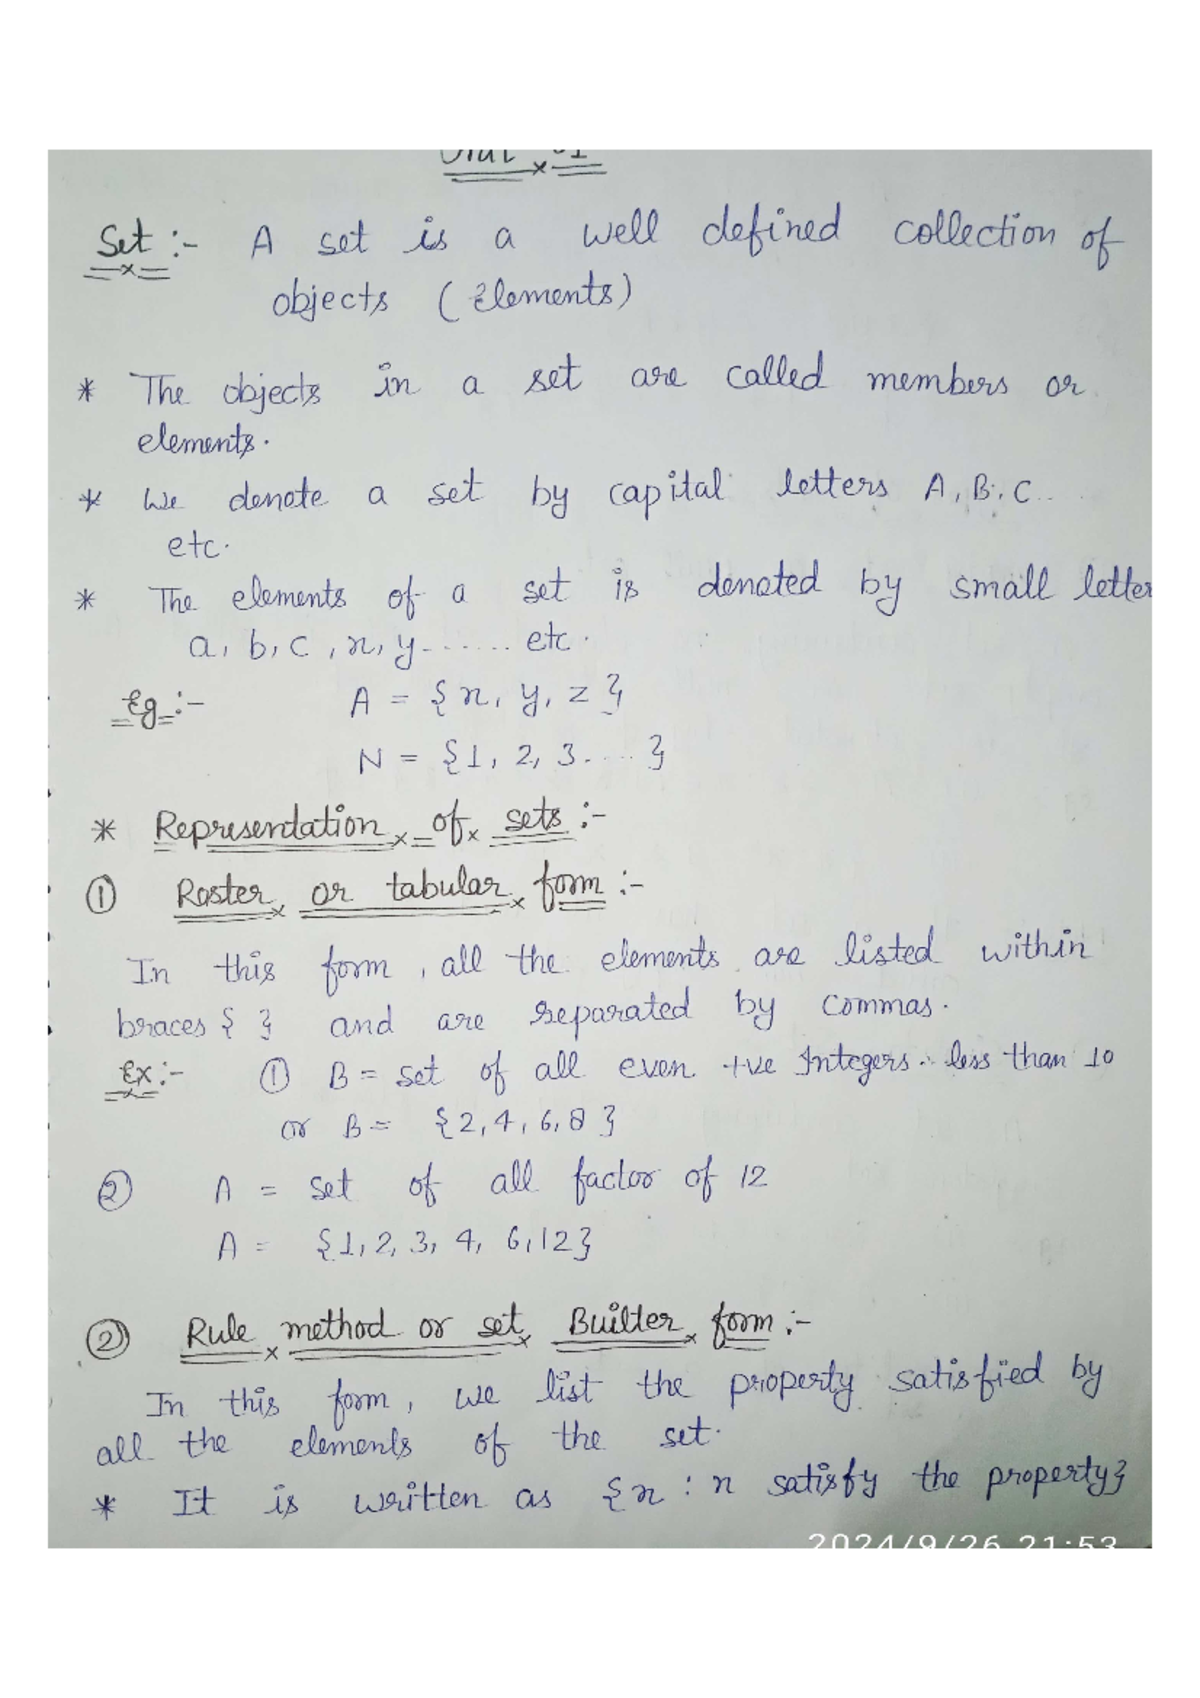 Set :- A set is a well defined collection of
objects (Elements)
* The objects in a set are called members or
elements.
* We denote a set by capital letters A, B, C...
etc.
* The elements of a set is denoted by small letter
a, b, c, x, y....... etc.
Eg :- A = {x, y, z}
N = {1, 2, 3.....}
* Representation of sets :-
① Roster or tabular form :-
In this form, all the elements are listed within
braces { } and are separated by commas.
Ex :- ① B = set of all even +ve Integers less than 10
or B = {2, 4, 6, 8}
② A = set of all factor of 12
A = {1, 2, 3, 4, 6, 12}
② Rule method or set Builter form :-
In this form, we list the property satisfied by
all the elements of the set.
* It is written as {x : x satisfy the property}
2024/9/26 21:53